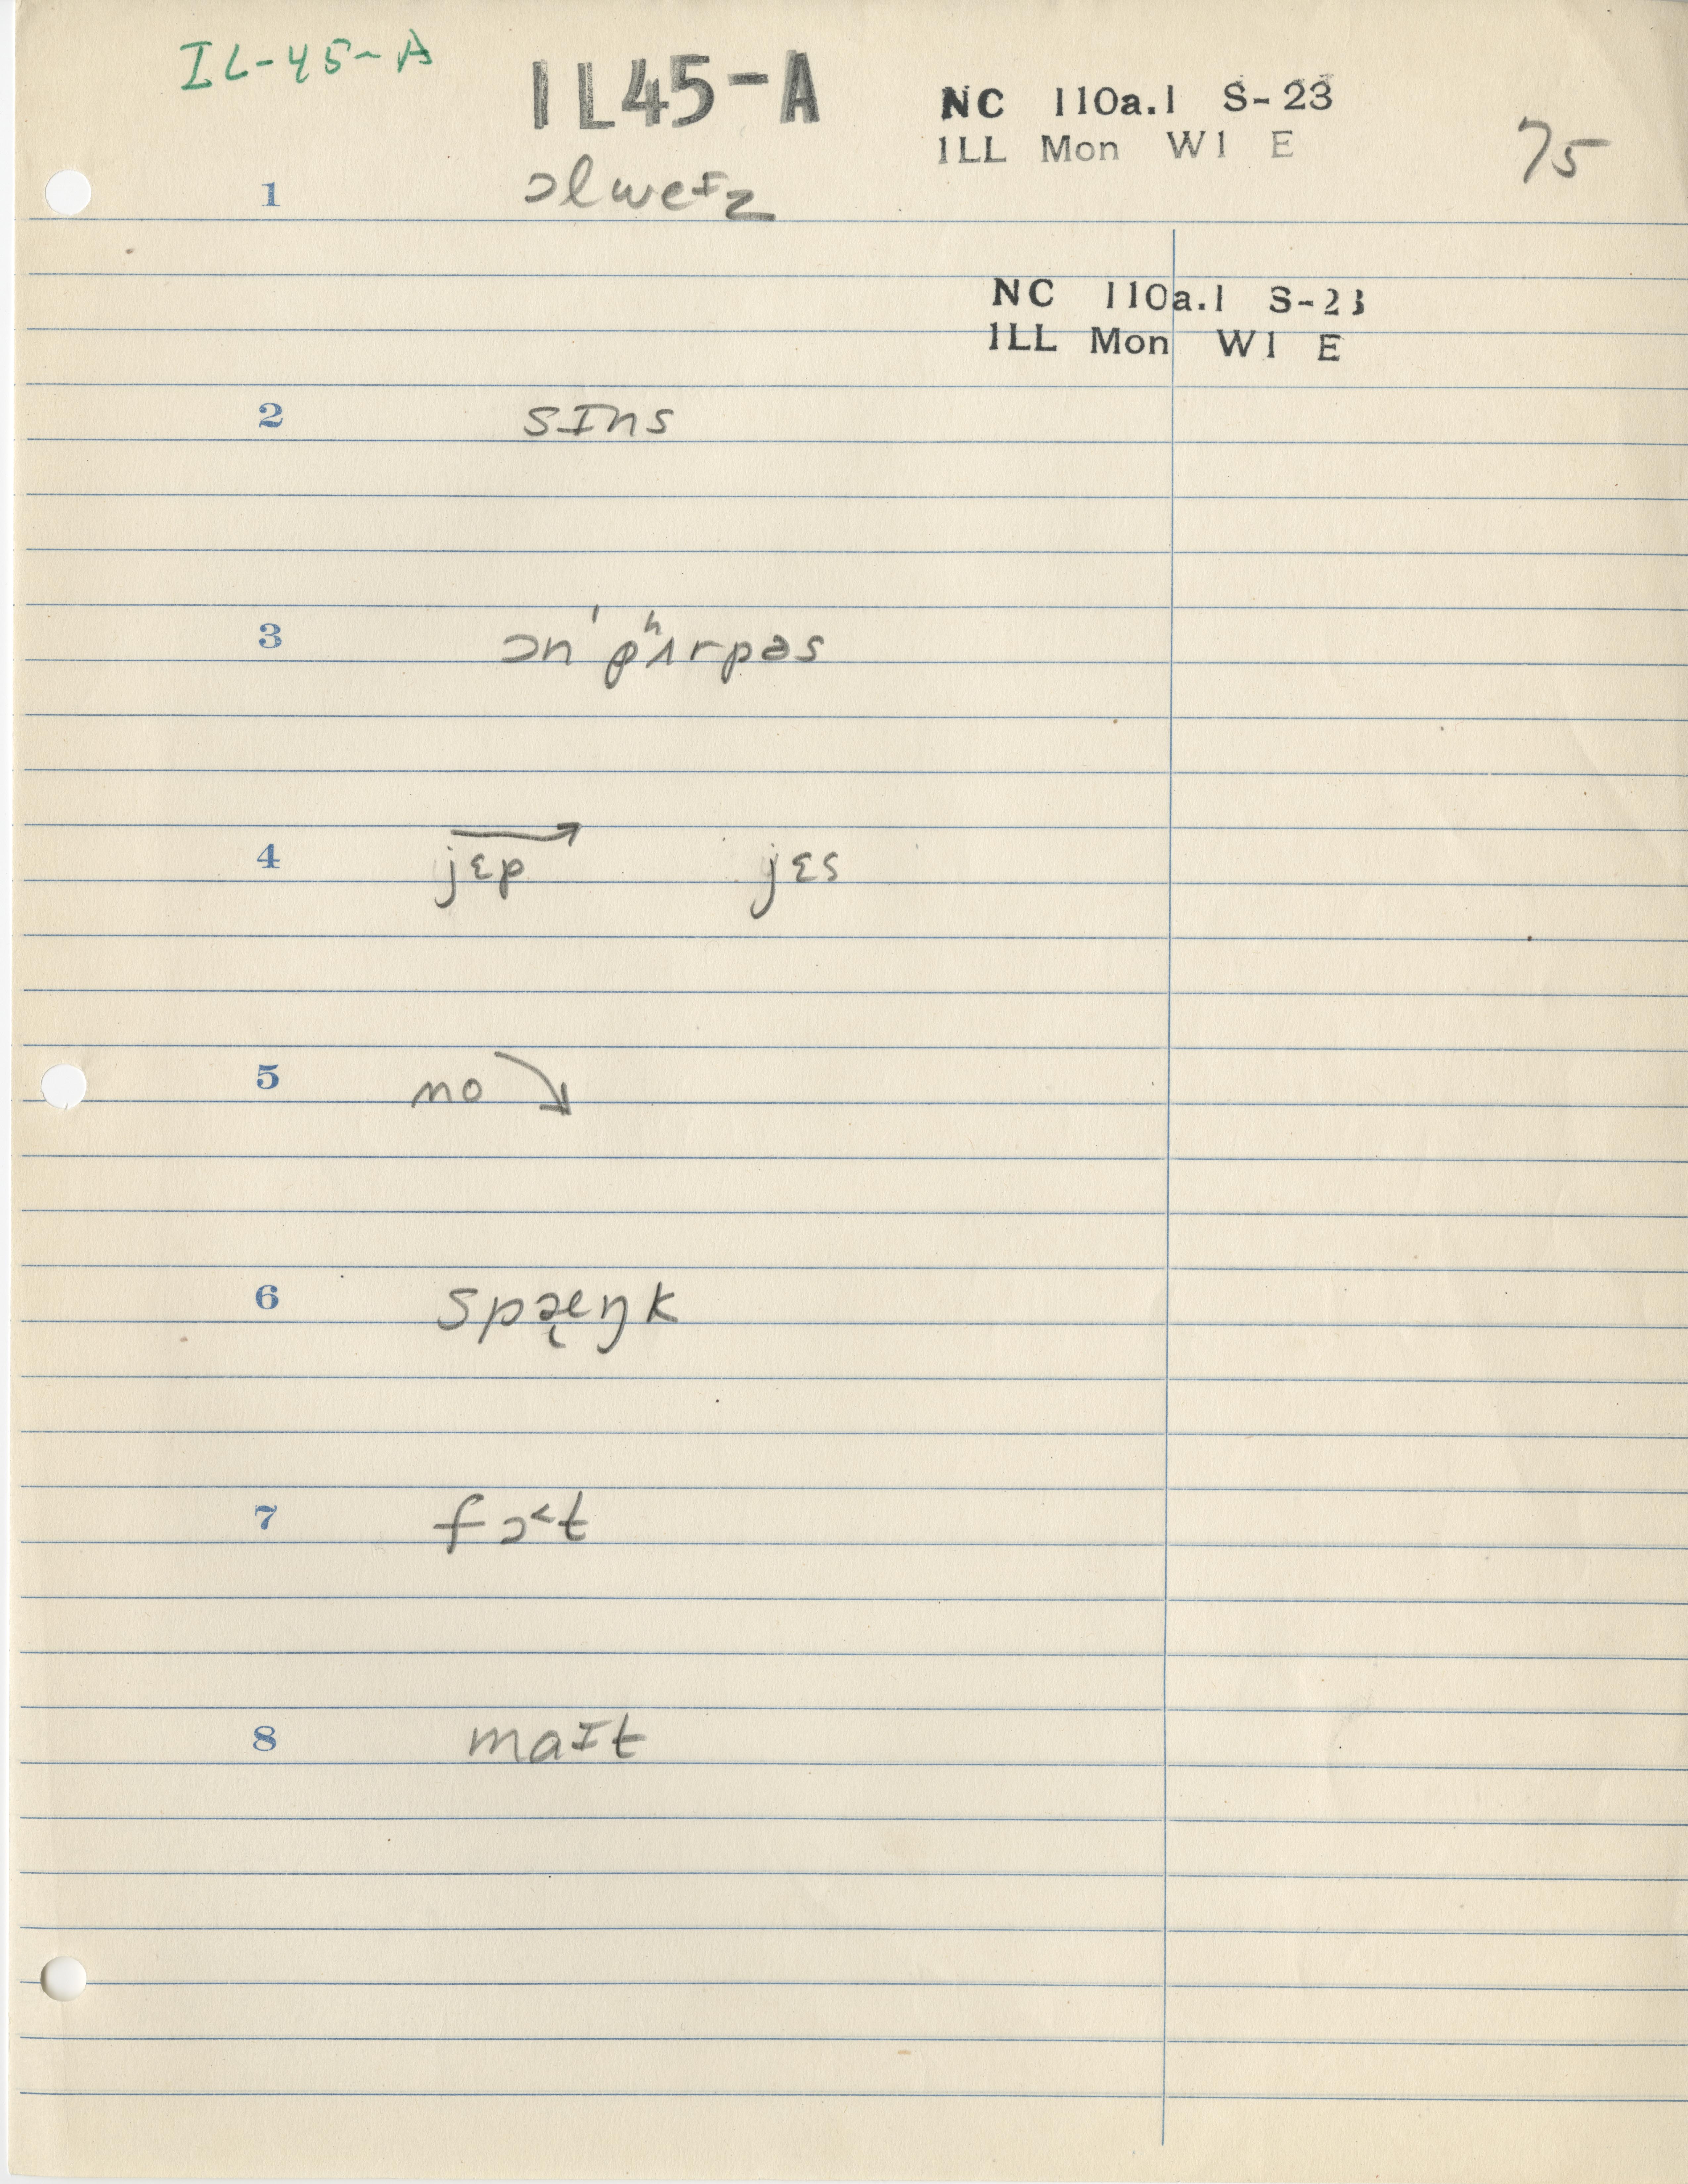 IL-45-A
IL45-A
NC 110a.1 S-23
ILL Mon W1 E
75
1 ɔlweɪz
NC 110a.1 S-23
ILL Mon W1 E
2 sɪns
3 ɔn'pʰʌrpəs
4 jɛp jɛs
5 no
6 spæ̨ŋk
7 fɔ˂t
8 maɪt